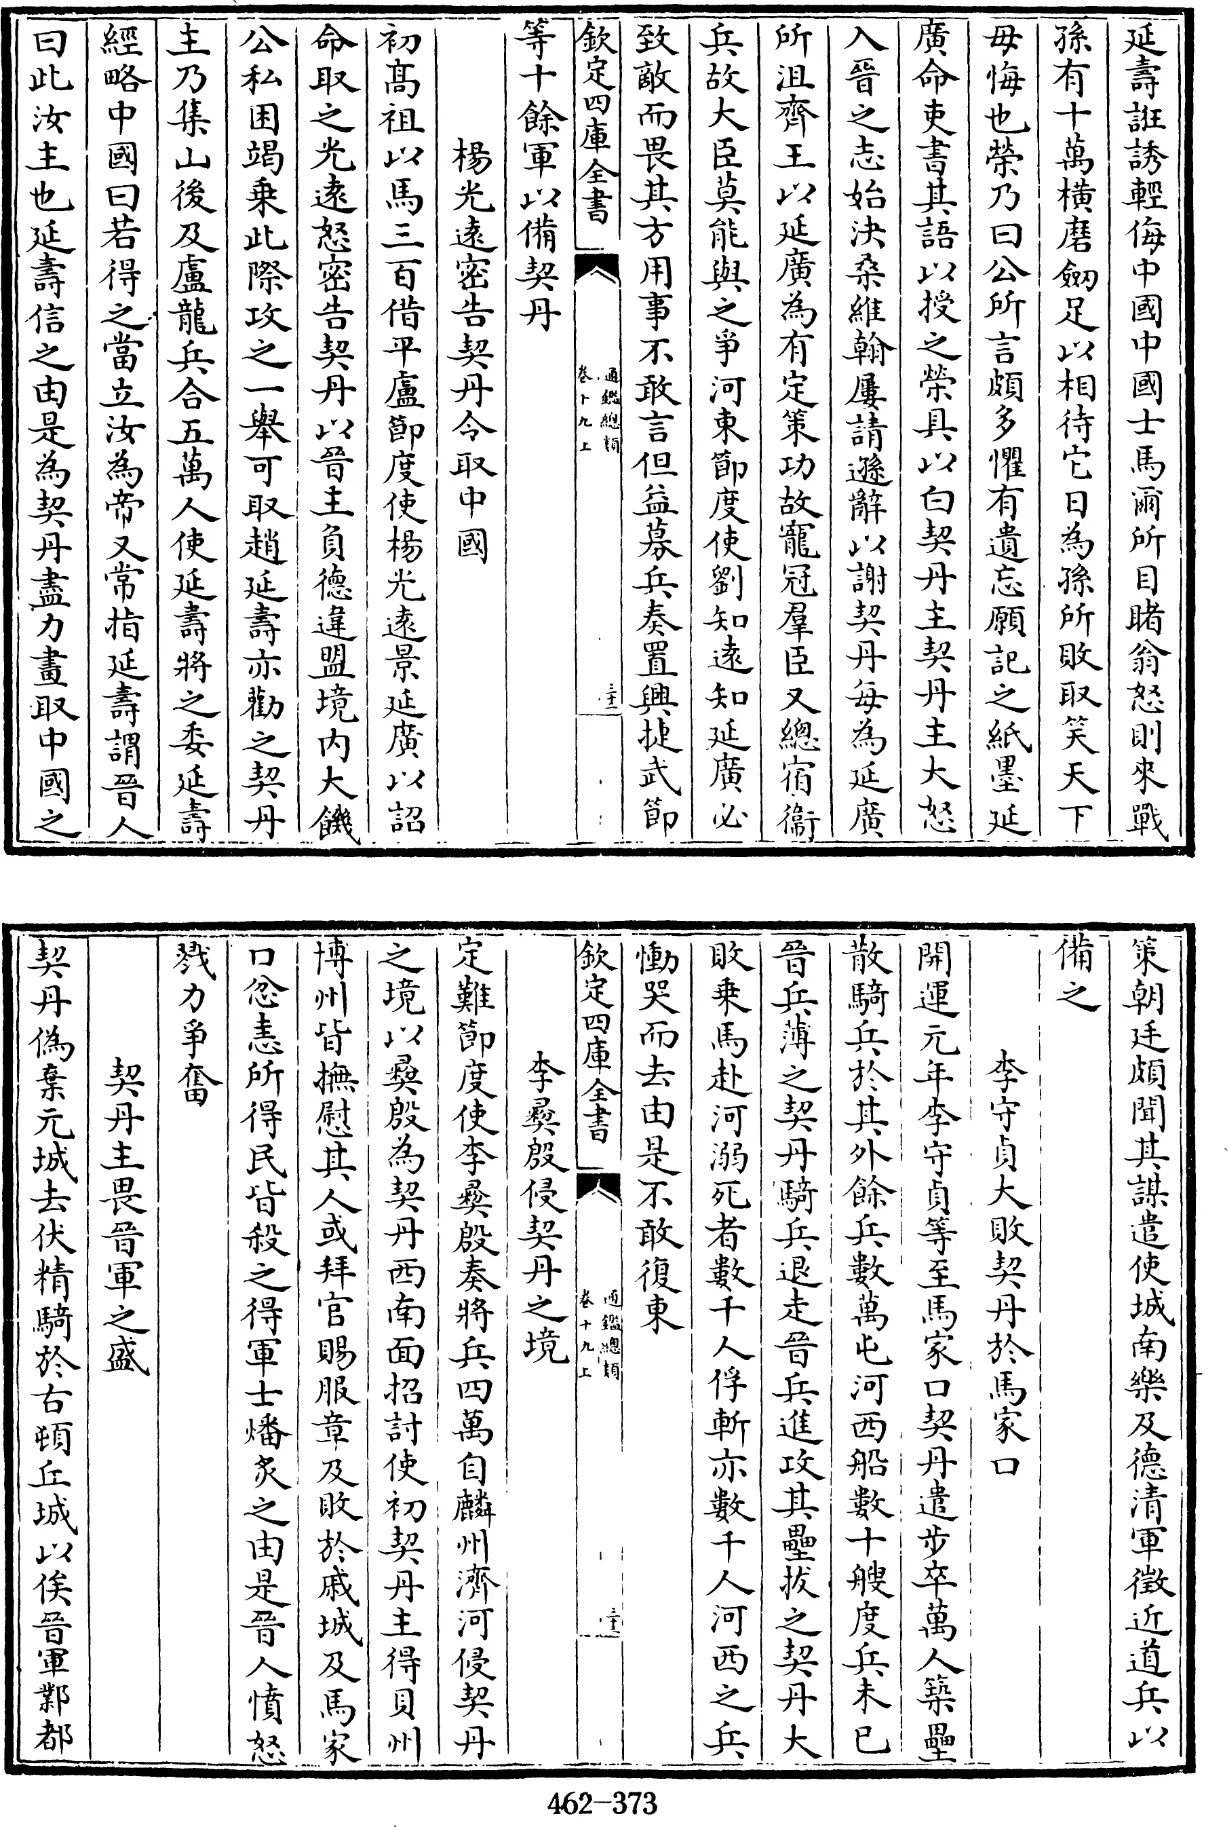 延壽誑誘輕侮中國中國士馬爾所目睹翁怒則來戰
孫有十萬横磨劔足以相待它日為孫所敗取笑天下
毋悔也榮乃曰公所言頗多懼有遺忘願記之紙墨延
廣命吏書其語以授之榮具以白契丹主契丹主大怒
入晉之志始決桑維翰屢請遜辭以謝契丹每為延廣
所沮齊王以延廣為有定策功故寵冠羣臣又總宿衞
兵故大臣莫能與之爭河東節度使劉知遠知延廣必
致敵而畏其方用事不敢言但益募兵奏置興捷武節
欽定四庫全書
通鑑總類
卷十九上
等十餘軍以備契丹
楊光遠密告契丹令取中國
初髙祖以馬三百借平盧節度使楊光遠景延廣以詔
命取之光遠怒密告契丹以晉主負德違盟境内大饑
公私困竭乗此際攻之一舉可取趙延壽亦勸之契丹
主乃集山後及盧龍兵合五萬人使延壽將之委延壽
經略中國曰若得之當立汝為帝又常指延壽謂晉人
曰此汝主也延壽信之由是為契丹盡力畫取中國之
策朝廷頗聞其謀遣使城南樂及德清軍徵近道兵以
備之
李守貞大敗契丹於馬家口
開運元年李守貞等至馬家口契丹遣步卒萬人築壘
散騎兵於其外餘兵數萬屯河西船數十艘度兵未已
晉兵薄之契丹騎兵退走晉兵進攻其壘拔之契丹大
敗乗馬赴河溺死者數千人俘斬亦數千人河西之兵
慟哭而去由是不敢復東
欽定四庫全書
通鑑總類
卷十九上
李彝殷侵契丹之境
定難節度使李彝殷奏將兵四萬自麟州濟河侵契丹
之境以彝殷為契丹西南面招討使初契丹主得貝州
博州皆撫慰其人或拜官賜服章及敗於戚城及馬家
口忿恚所得民皆殺之得軍士燔炙之由是晉人憤怒
戮力爭奮
契丹主畏晉軍之盛
契丹偽棄元城去伏精騎於古頓丘城以俟晉軍鄴都
462-373